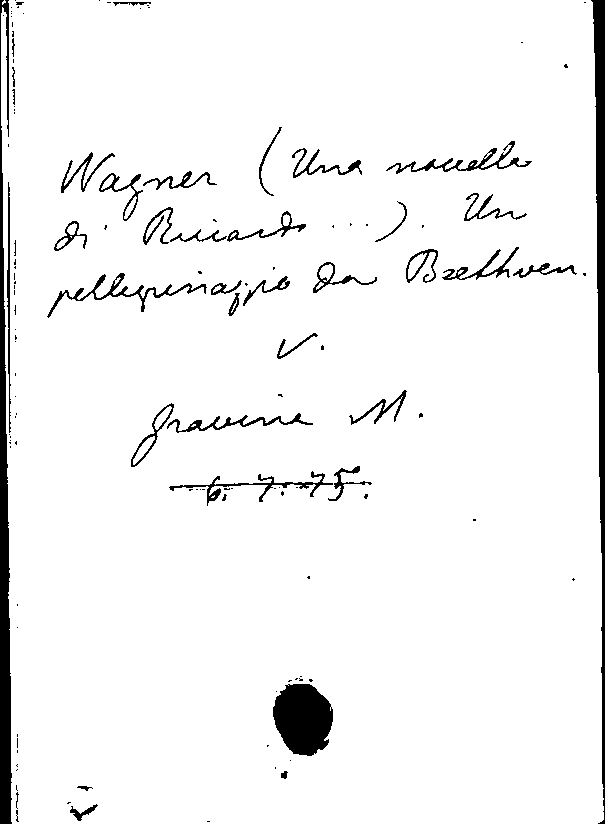 Wagner (Una novella
di Riccardo ...). Un
pellegrinaggio da Beethoven.
V.
Gravina M.
6. 7. 75.